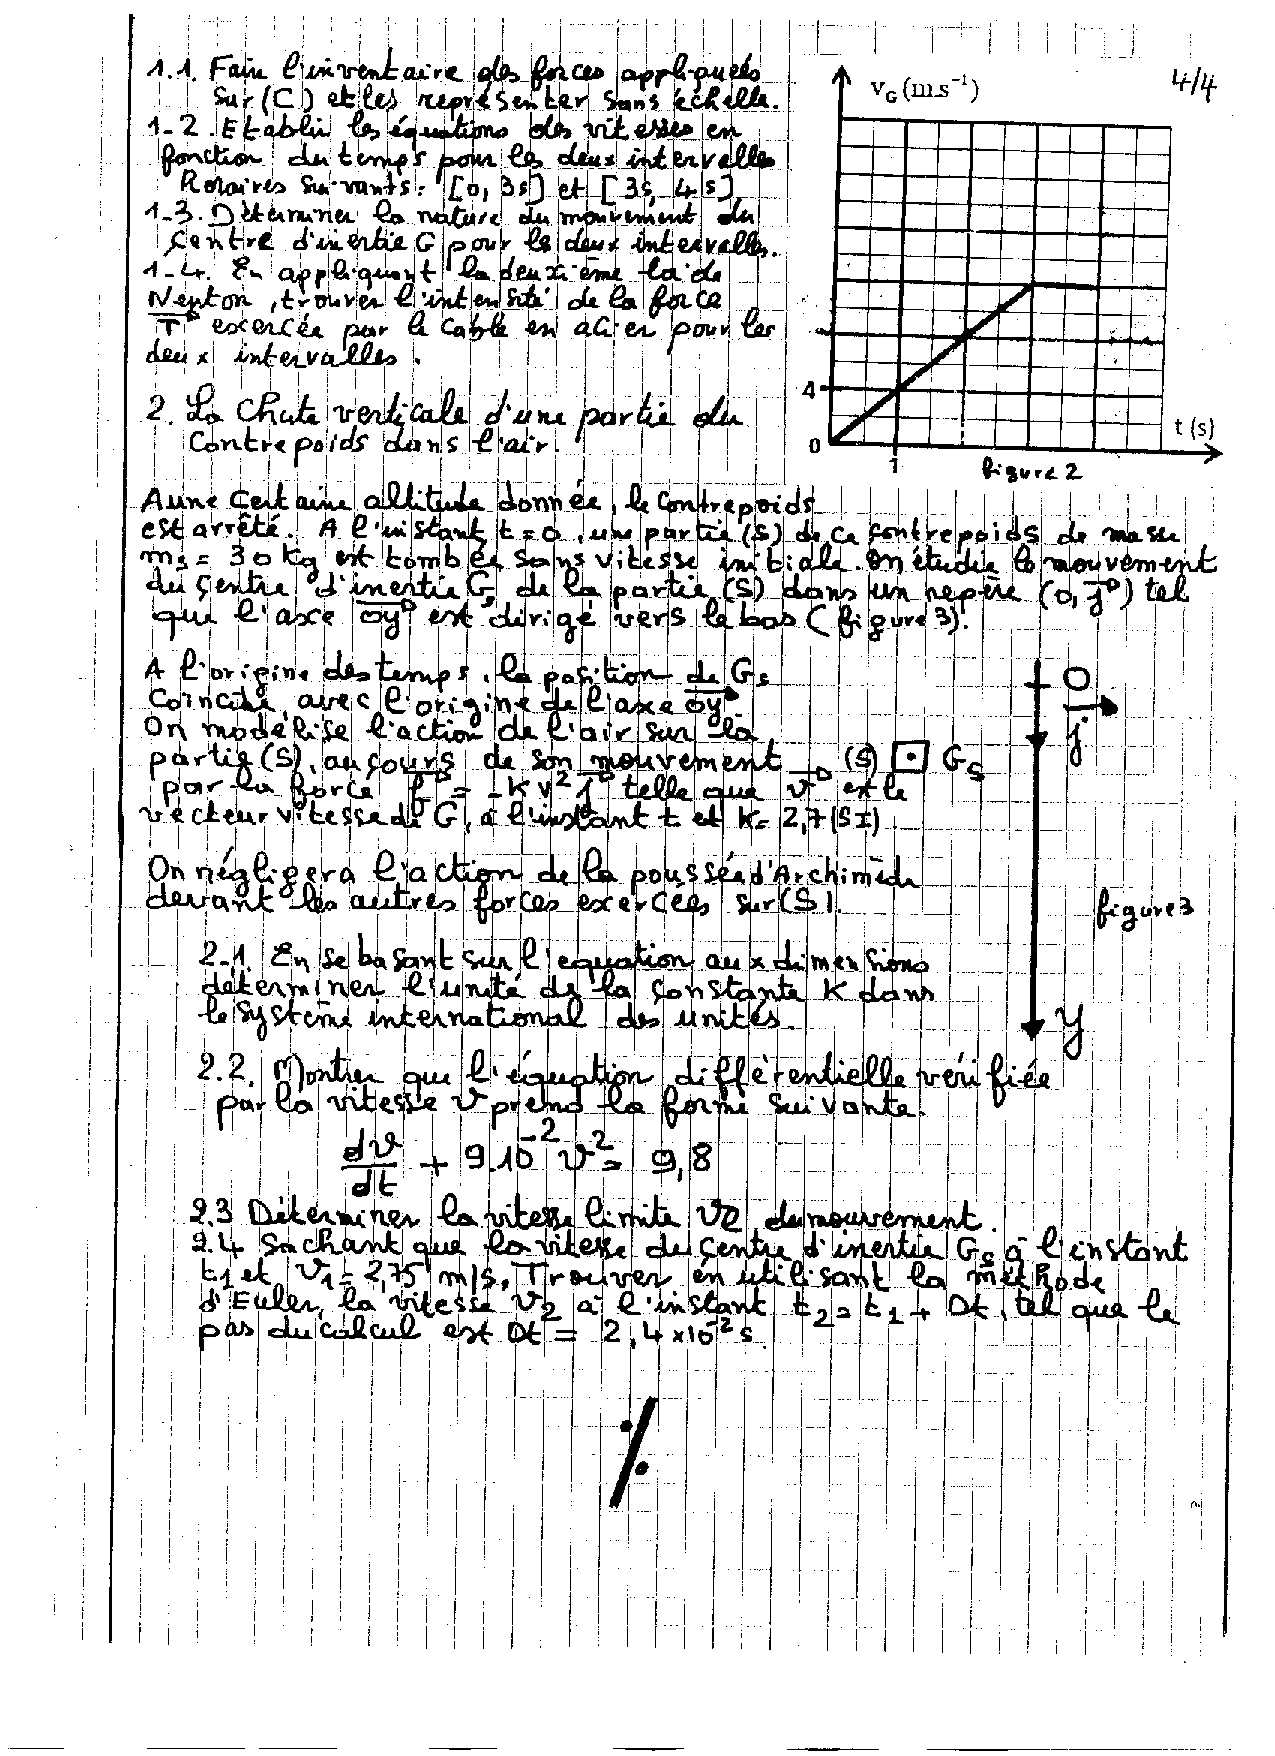 4/4
1.1. Faire l'inventaire des forces appliquées
sur (C) et les représenter sans échelle.
1-2. Etablir les équations des vitesses en
fonction du temps pour les deux intervalles
horaires suivants: [0, 3s] et [3s, 4s]
1-3. Déterminer la nature du mouvement du
centre d'inertie G pour les deux intervalles.
1-4. En appliquant la deuxième loi de
Newton, trouver l'intensité de la force
T exercée par le cable en acier pour les
deux intervalles.
vG (m.s⁻¹)
4
0
1
t (s)
figure 2
2. La chute verticale d'une partie du
contrepoids dans l'air.
A une certaine altitude donnée, le contrepoids
est arrêté. A l'instant t=0, une partie (S) de ce contrepoids de masse
ms = 30 kg est tombée sans vitesse initiale. On étudie le mouvement
du centre d'inertie Gs de la partie (S) dans un repère (O, j) tel
que l'axe oy est dirigé vers le bas (figure 3).
A l'origine des temps, la position de Gs
coincide avec l'origine de l'axe oy
On modélise l'action de l'air sur la
partie (S), au cours de son mouvement
par la force f = -K v² j telle que v est le
vecteur vitesse de G, à l'instant t et K= 2,7 (SI)
On négligera l'action de la poussée d'Archimède
devant les autres forces exercées sur (S).
O
j
(S)
Gs
y
figure 3
2-1. En se basant sur l'equation aux dimensions
déterminer l'unité de la constante K dans
le système international des unités
2.2. Montrer que l'équation différentielle vérifiée
par la vitesse v prend la forme suivante.
dv/dt + 9.10⁻² v² = 9,8
2.3 Déterminer la vitesse limite vl du mouvement.
2.4 Sachant que la vitesse du centre d'inertie Gs à l'instant
t1 et v1 = 2,75 m/s. Trouver en utilisant la méthode
d'Euler, la vitesse v2 à l'instant t2 = t1 + Dt, tel que le
pas du calcul est Dt = 2,4 x10⁻² s.